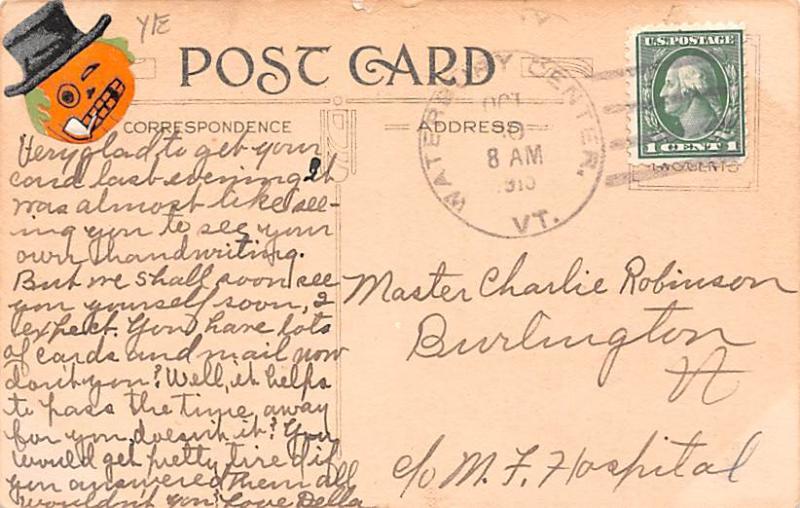 Y1E
POST CARD
CORRESPONDENCE
ADDRESS
U.S. POSTAGE
1 CENT 1
WATERBURY CENTER,
OCT
8 AM
VT.
Very glad to get your
card last evening. It
was almost like see-
ing you to see your
own handwriting.
But we shall soon see
you yourself soon, I
expect. You have lots
of cards and mail now
don't you? Well, it helps
to pass the time away
for you, doesn't it? You
would get pretty tired if
you answered them all
wouldn't you? Love Della
Master Charlie Robinson
Burlington
Vt
c/o M. F. Hospital